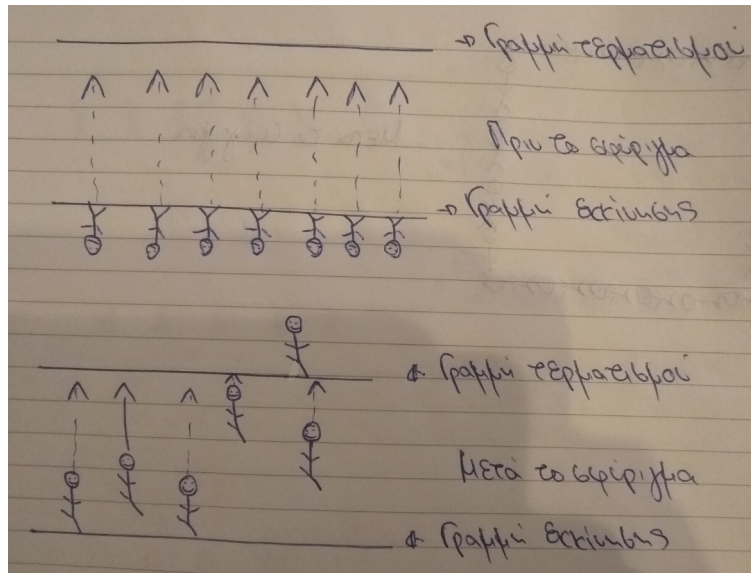 Γραμμή τερματισμού
Πριν το σφύριγμα
Γραμμή εκκίνησης
Γραμμή τερματισμού
Μετά το σφύριγμα
Γραμμή εκκίνησης